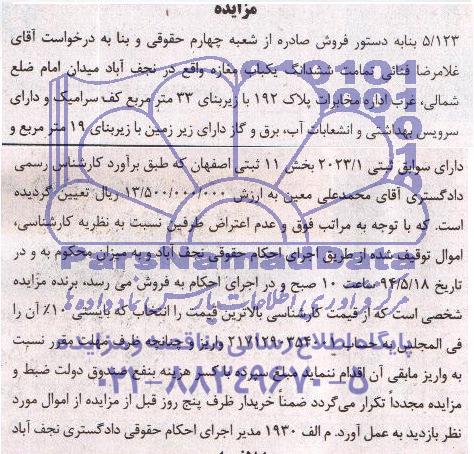 مزایده
۵/۱۲۳ بنابه دستور فروش صادره از شعبه چهارم حقوقی و بنا به درخواست آقای
غلامرضا فنائی تمامت ششدانگ یکباب مغازه واقع در نجف آباد میدان امام ضلع
شمالی، غرب اداره مخابرات پلاک ۱۹۲ با زیربنای ۳۳ متر مربع کف سرامیک و دارای
سرویس بهداشتی و انشعابات آب، برق و گاز دارای زیر زمین با زیربنای ۱۹ متر مربع و
دارای سوابق ثبتی ۲۰۲۳/۱ بخش ۱۱ ثبتی اصفهان که طبق برآورد کارشناس رسمی
دادگستری آقای محمدعلی معین به ارزش ۱۳/۵۰۰/۰۰۰/۰۰۰ ریال تعیین گردیده
است. که با توجه به مراتب فوق و عدم اعتراض طرفین نسبت به نظریه کارشناسی،
اموال توقیف شده از طریق اجرای احکام حقوقی نجف آباد و به میزان محکوم به و در
تاریخ ۹۴/۵/۱۸ ساعت ۱۰ صبح و در اجرای احکام به فروش می رسد، برنده مزایده
شخصی است که از قیمت کارشناسی بالاترین قیمت را انتخاب که بایستی ۱۰٪ آن را
فی المجلس به حساب واریز و چنانچه ظرف مهلت مقرر نسبت
به واریز مابقی آن اقدام ننماید مبلغ سپرده با کسر هزینه بنفع صندوق دولت ضبط و
مزایده مجدداً تکرار می‌گردد ضمناً خریدار ظرف پنج روز قبل از مزایده از اموال مورد
نظر بازدید به عمل آورد. م الف ۱۹۳۰ مدیر اجرای احکام حقوقی دادگستری نجف آباد
ParsNamadData
مرکز فرآوری اطلاعات پارس نماد داده ها
پایگاه اطلاع رسانی مناقصه و مزایده
۰۲۱-۸۸۳۴۹۶۷۰-۵